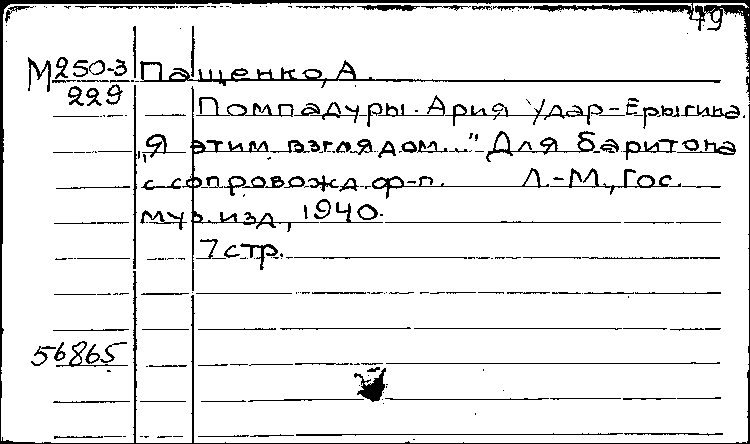 49
М250-3 Пащенко, А.
229
Помпадуры. Ария Удар-Ерыгина
„Я этим взглядом..." Для баритона
с сопровожд. ф-п. Л.-М., Гос.
муз. изд., 1940.
7 стр.
56865